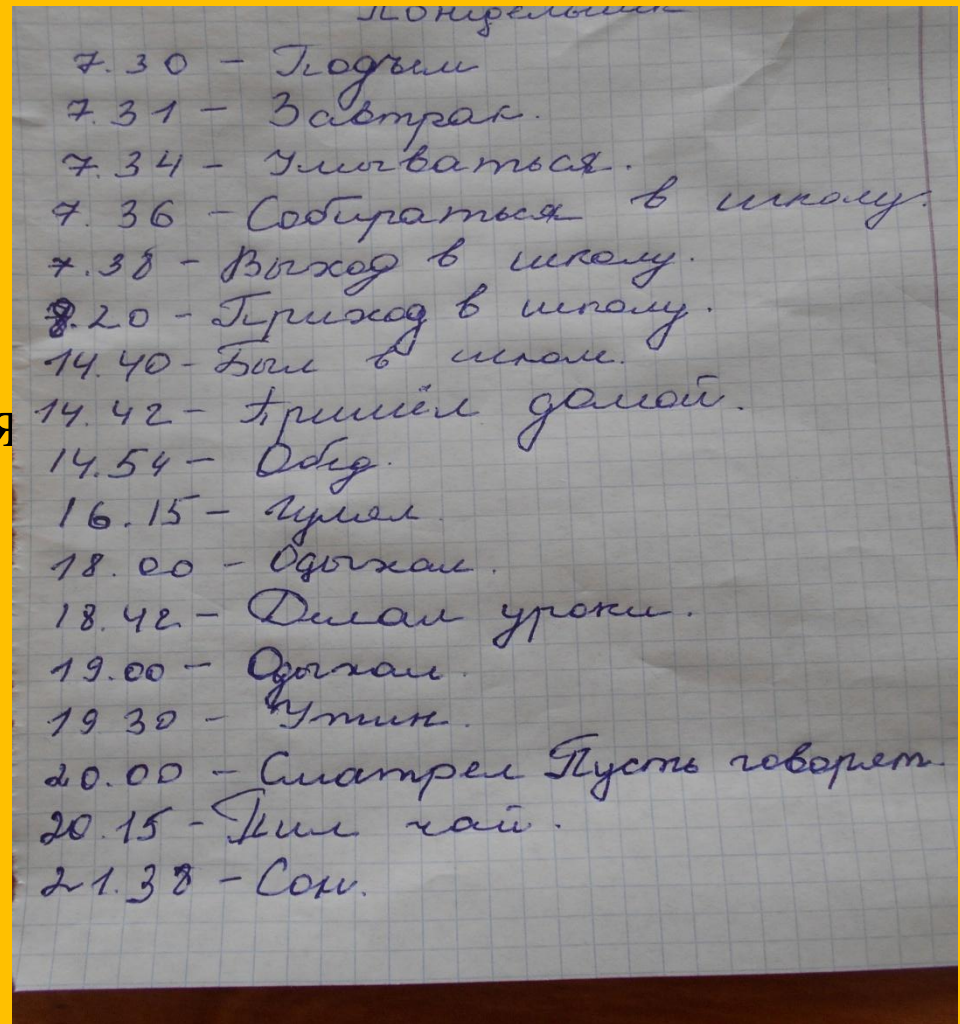 Понидельник
7.30 - Подъём
7.31 - Завтрак.
7.34 - Умываться.
7.36 - Собираться в школу.
7.38 - Выход в школу.
8.20 - Приход в школу.
14.40 - Был в школе.
14.42 - Пришёл домой.
я
14.54 - Обед.
16.15 - Гулял
18.00 - Одыхал.
18.42 - Делал уроки.
19.00 - Одыхал.
19 30 - Ужин.
20.00 - Сматрел Пусть говорят.
20.15 - Пил чай.
21.38 - Сон.